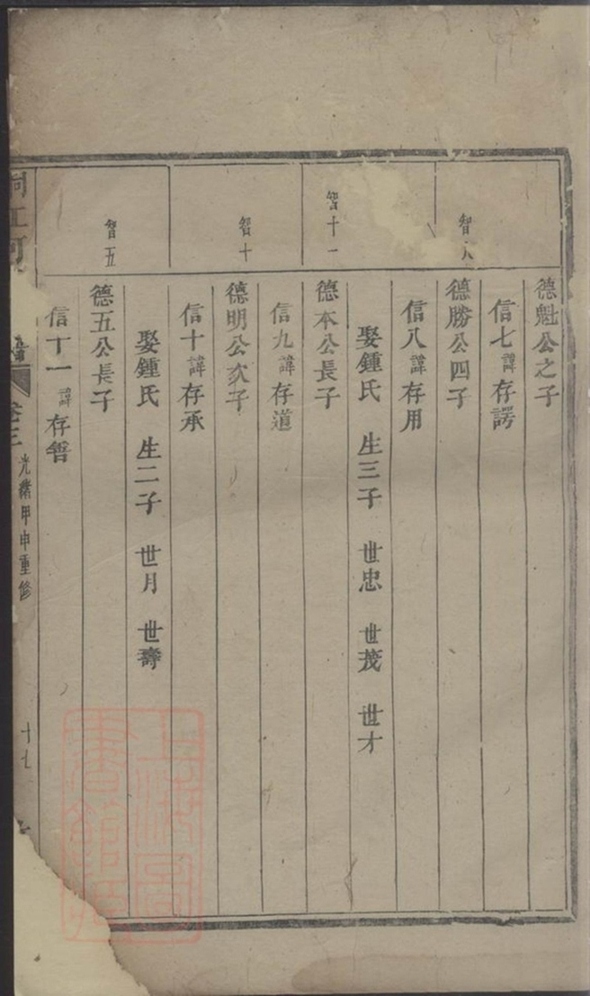 德魁公之子
信七諱存諤
智八
德勝公四子
信八諱存用
娶鍾氏 生三子 世忠 世茂 世才
智十一
德本公長子
信九諱存道
智十
德明公次子
信十諱存承
娶鍾氏 生二子 世月 世壽
智五
德五公長子
信十一諱存
桐江
卷三
光緒甲申重修
十七
上海圖書館藏